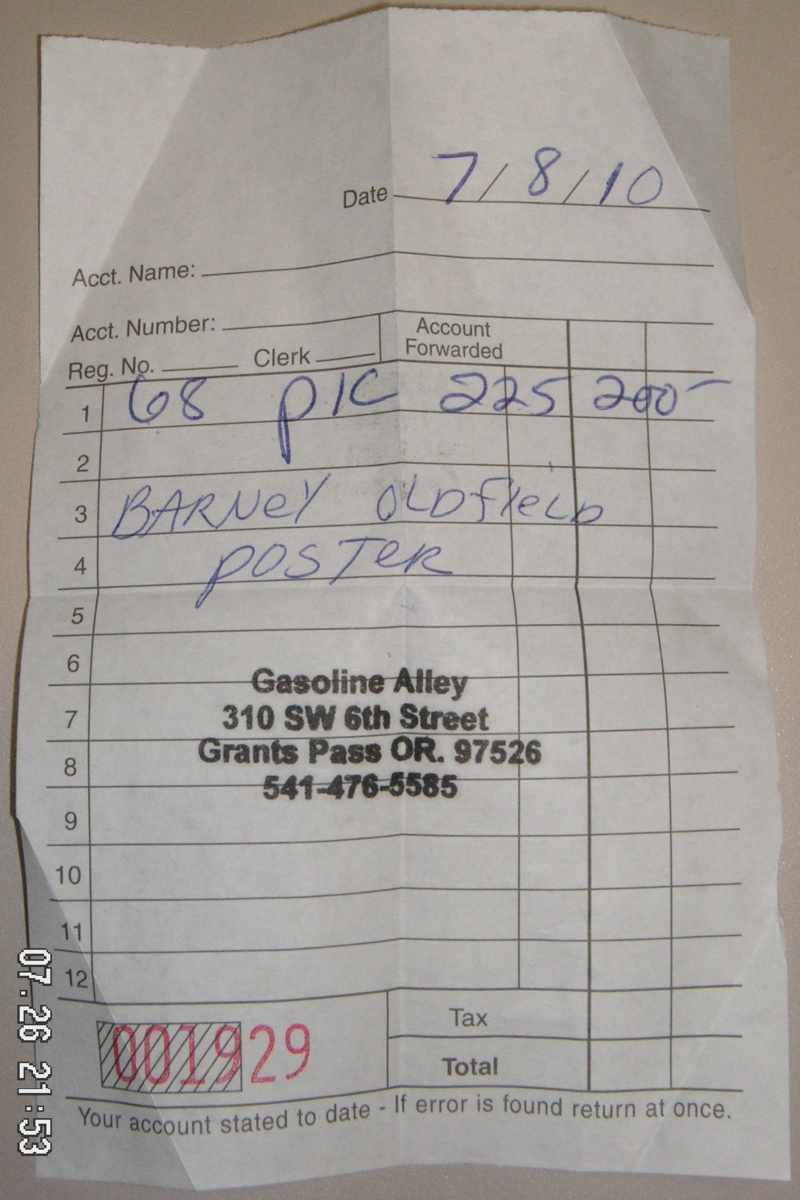 Date 7/8/10
Acct. Name:
Acct. Number:
Account Forwarded
Reg. No. Clerk
1 68 PIC 225 200-
2
3 BARNEY OLDFIELD
4 POSTER
5
6
Gasoline Alley
7 310 SW 6th Street
8 Grants Pass OR. 97526
541-476-5585
9
10
11
12
Tax
001929
Total
Your account stated to date - If error is found return at once.
07.26 21:53